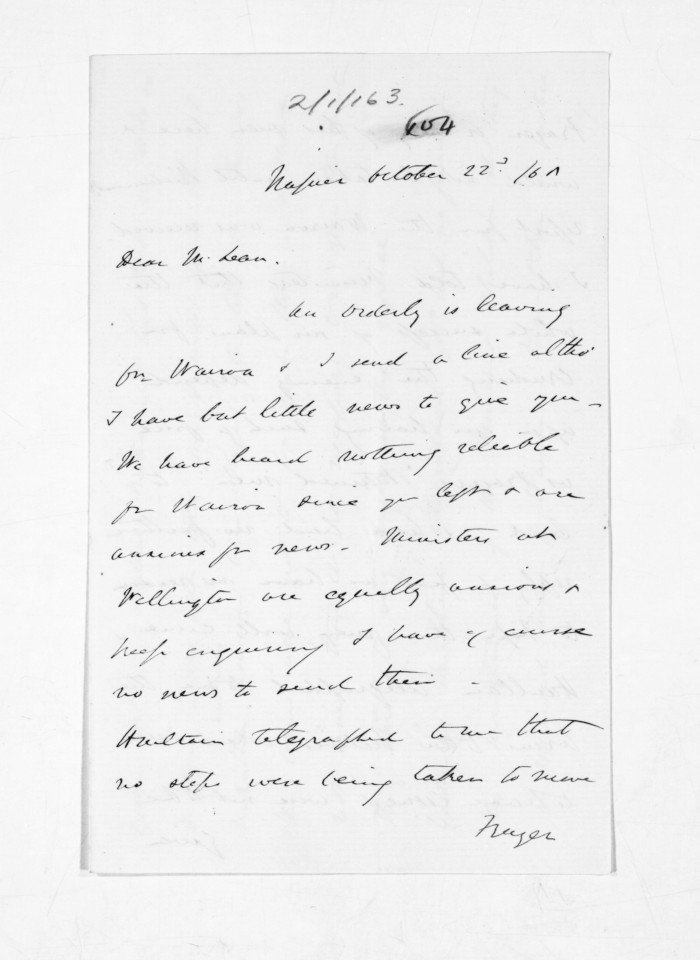 2/1/163.
604
Napier October 22d /68
Dear McLean.
An orderly is leaving
for Wairoa & I send a line altho
I have but little news to give you –
We have heard nothing reliable
fr Wairoa since you left & are
anxious for news – Ministers at
Wellington are equally anxious &
keep enquiring I have of course
no news to send them –
Haultain telegraphed to me that
no steps were being taken to move
Frazer